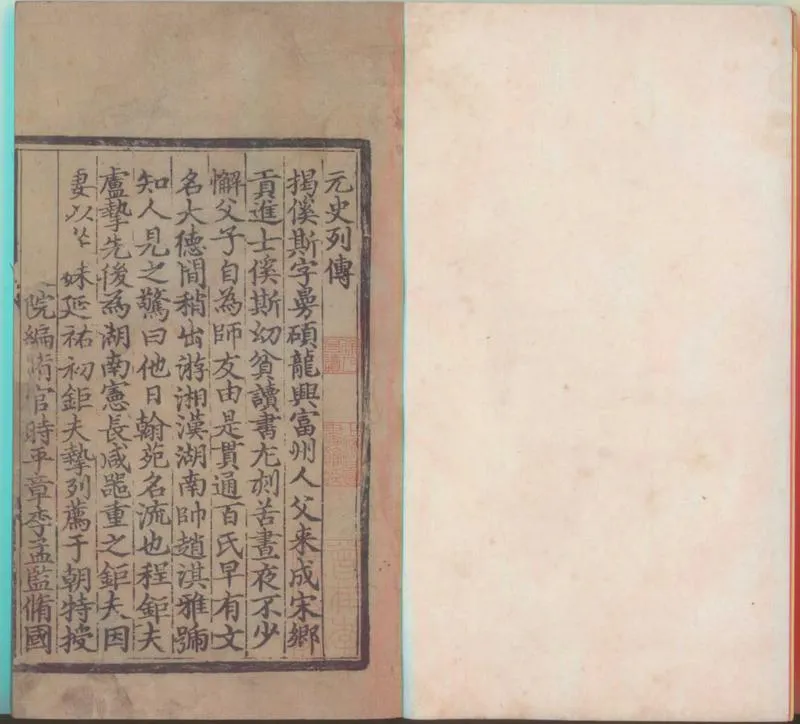 元史列傳
揭傒斯字曼碩龍興富州人父来成宋鄉
貢進士傒斯幼貧讀書尤刻苦晝夜不少
懈父子自為師友由是貫通百氏早有文
名大德間稍出游湘漢湖南帥趙淇雅號
知人見之驚曰他日翰苑名流也程鉅夫
盧摯先後為湖南憲長咸噐重之鉅夫因
妻以 妹延祐初鉅夫摯列薦于朝特授
院編脩官時平章李孟監脩國